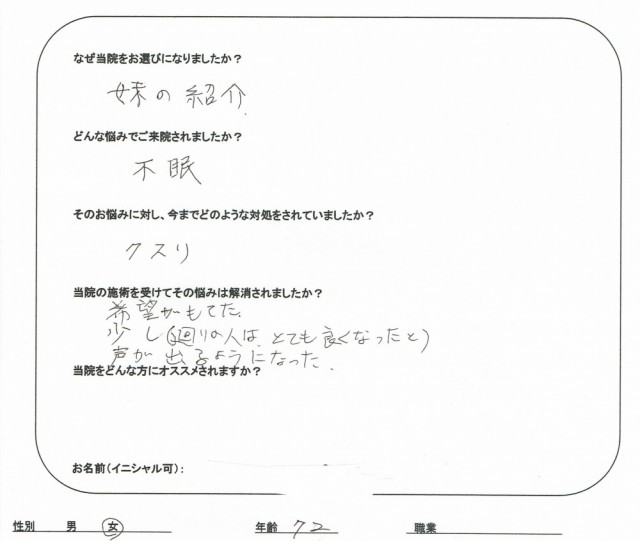 なぜ当院をお選びになりましたか？
妹の紹介
どんな悩みでご来院されましたか？
不眠
そのお悩みに対し、今までどのような対処をされていましたか？
クスリ
当院の施術を受けてその悩みは解消されましたか？
希望がもてた.
少し(廻りの人は、とても良くなったと)
声が出るようになった.
当院をどんな方にオススメされますか？
お名前(イニシャル可)：
性別 男 女 年齢 72 職業